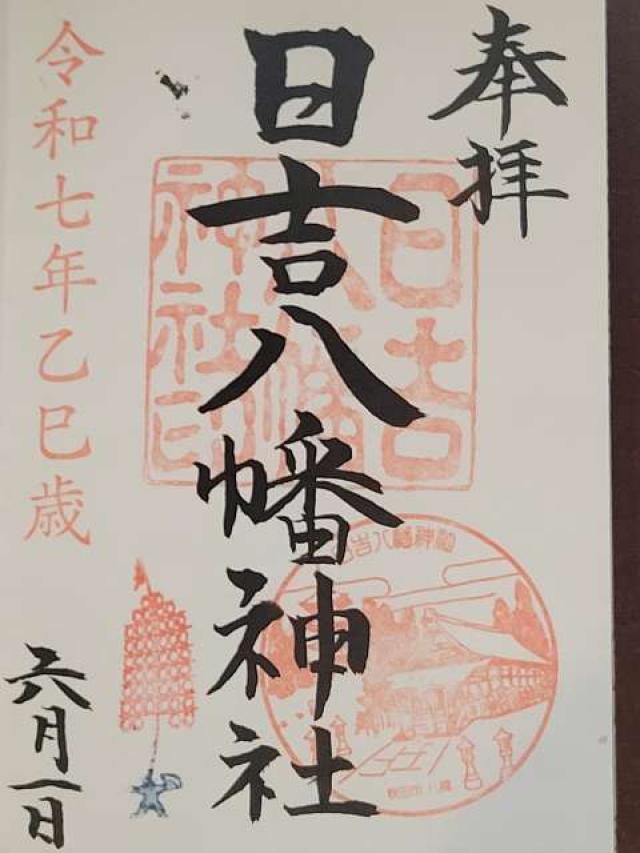 奉拝
日吉八幡神社
日吉八幡神社印
日吉八幡神社
秋田市八橋
令和七年乙巳歳
六月一日